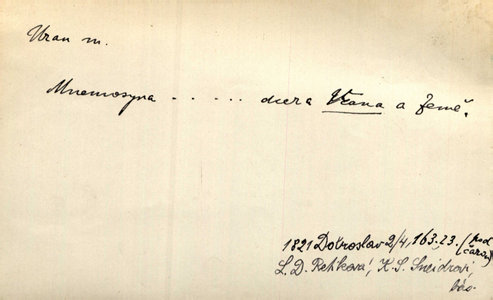 Uran m.
Mnemosyna . . . . . . dcera Urana a Země.
1821 Dobroslav 2/4, 163.23. (pod čarou)
L. D. Retíková, K. S. Šnejdrovi,